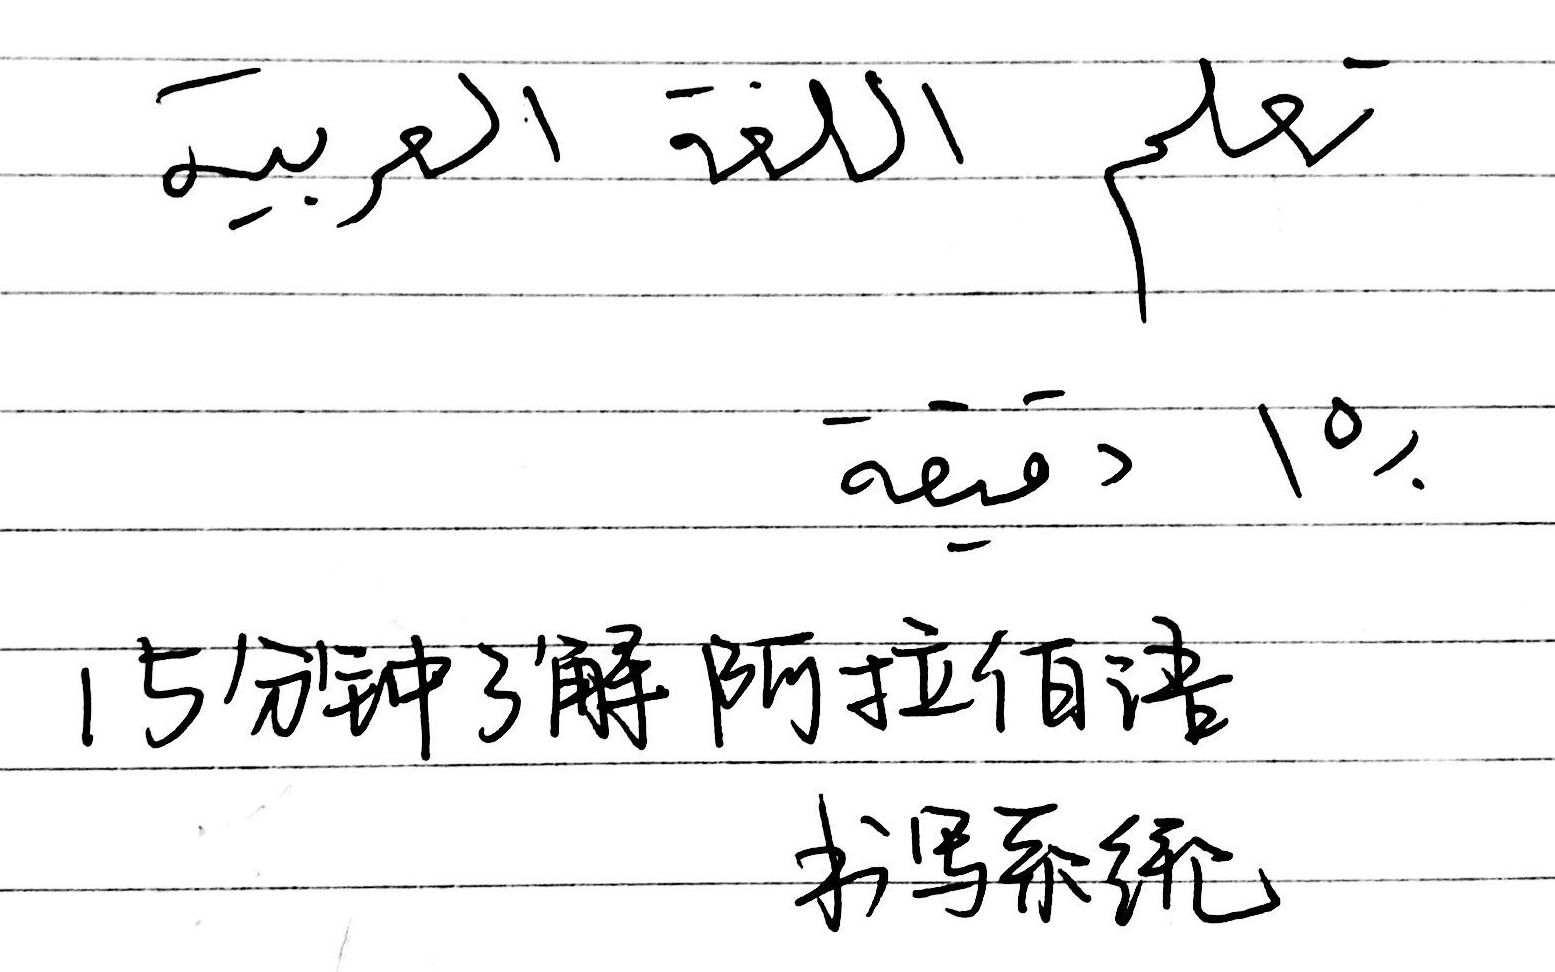 تعلم اللغة العربية
بـ ١٥ دقيقة
15分钟了解阿拉伯语
书写系统